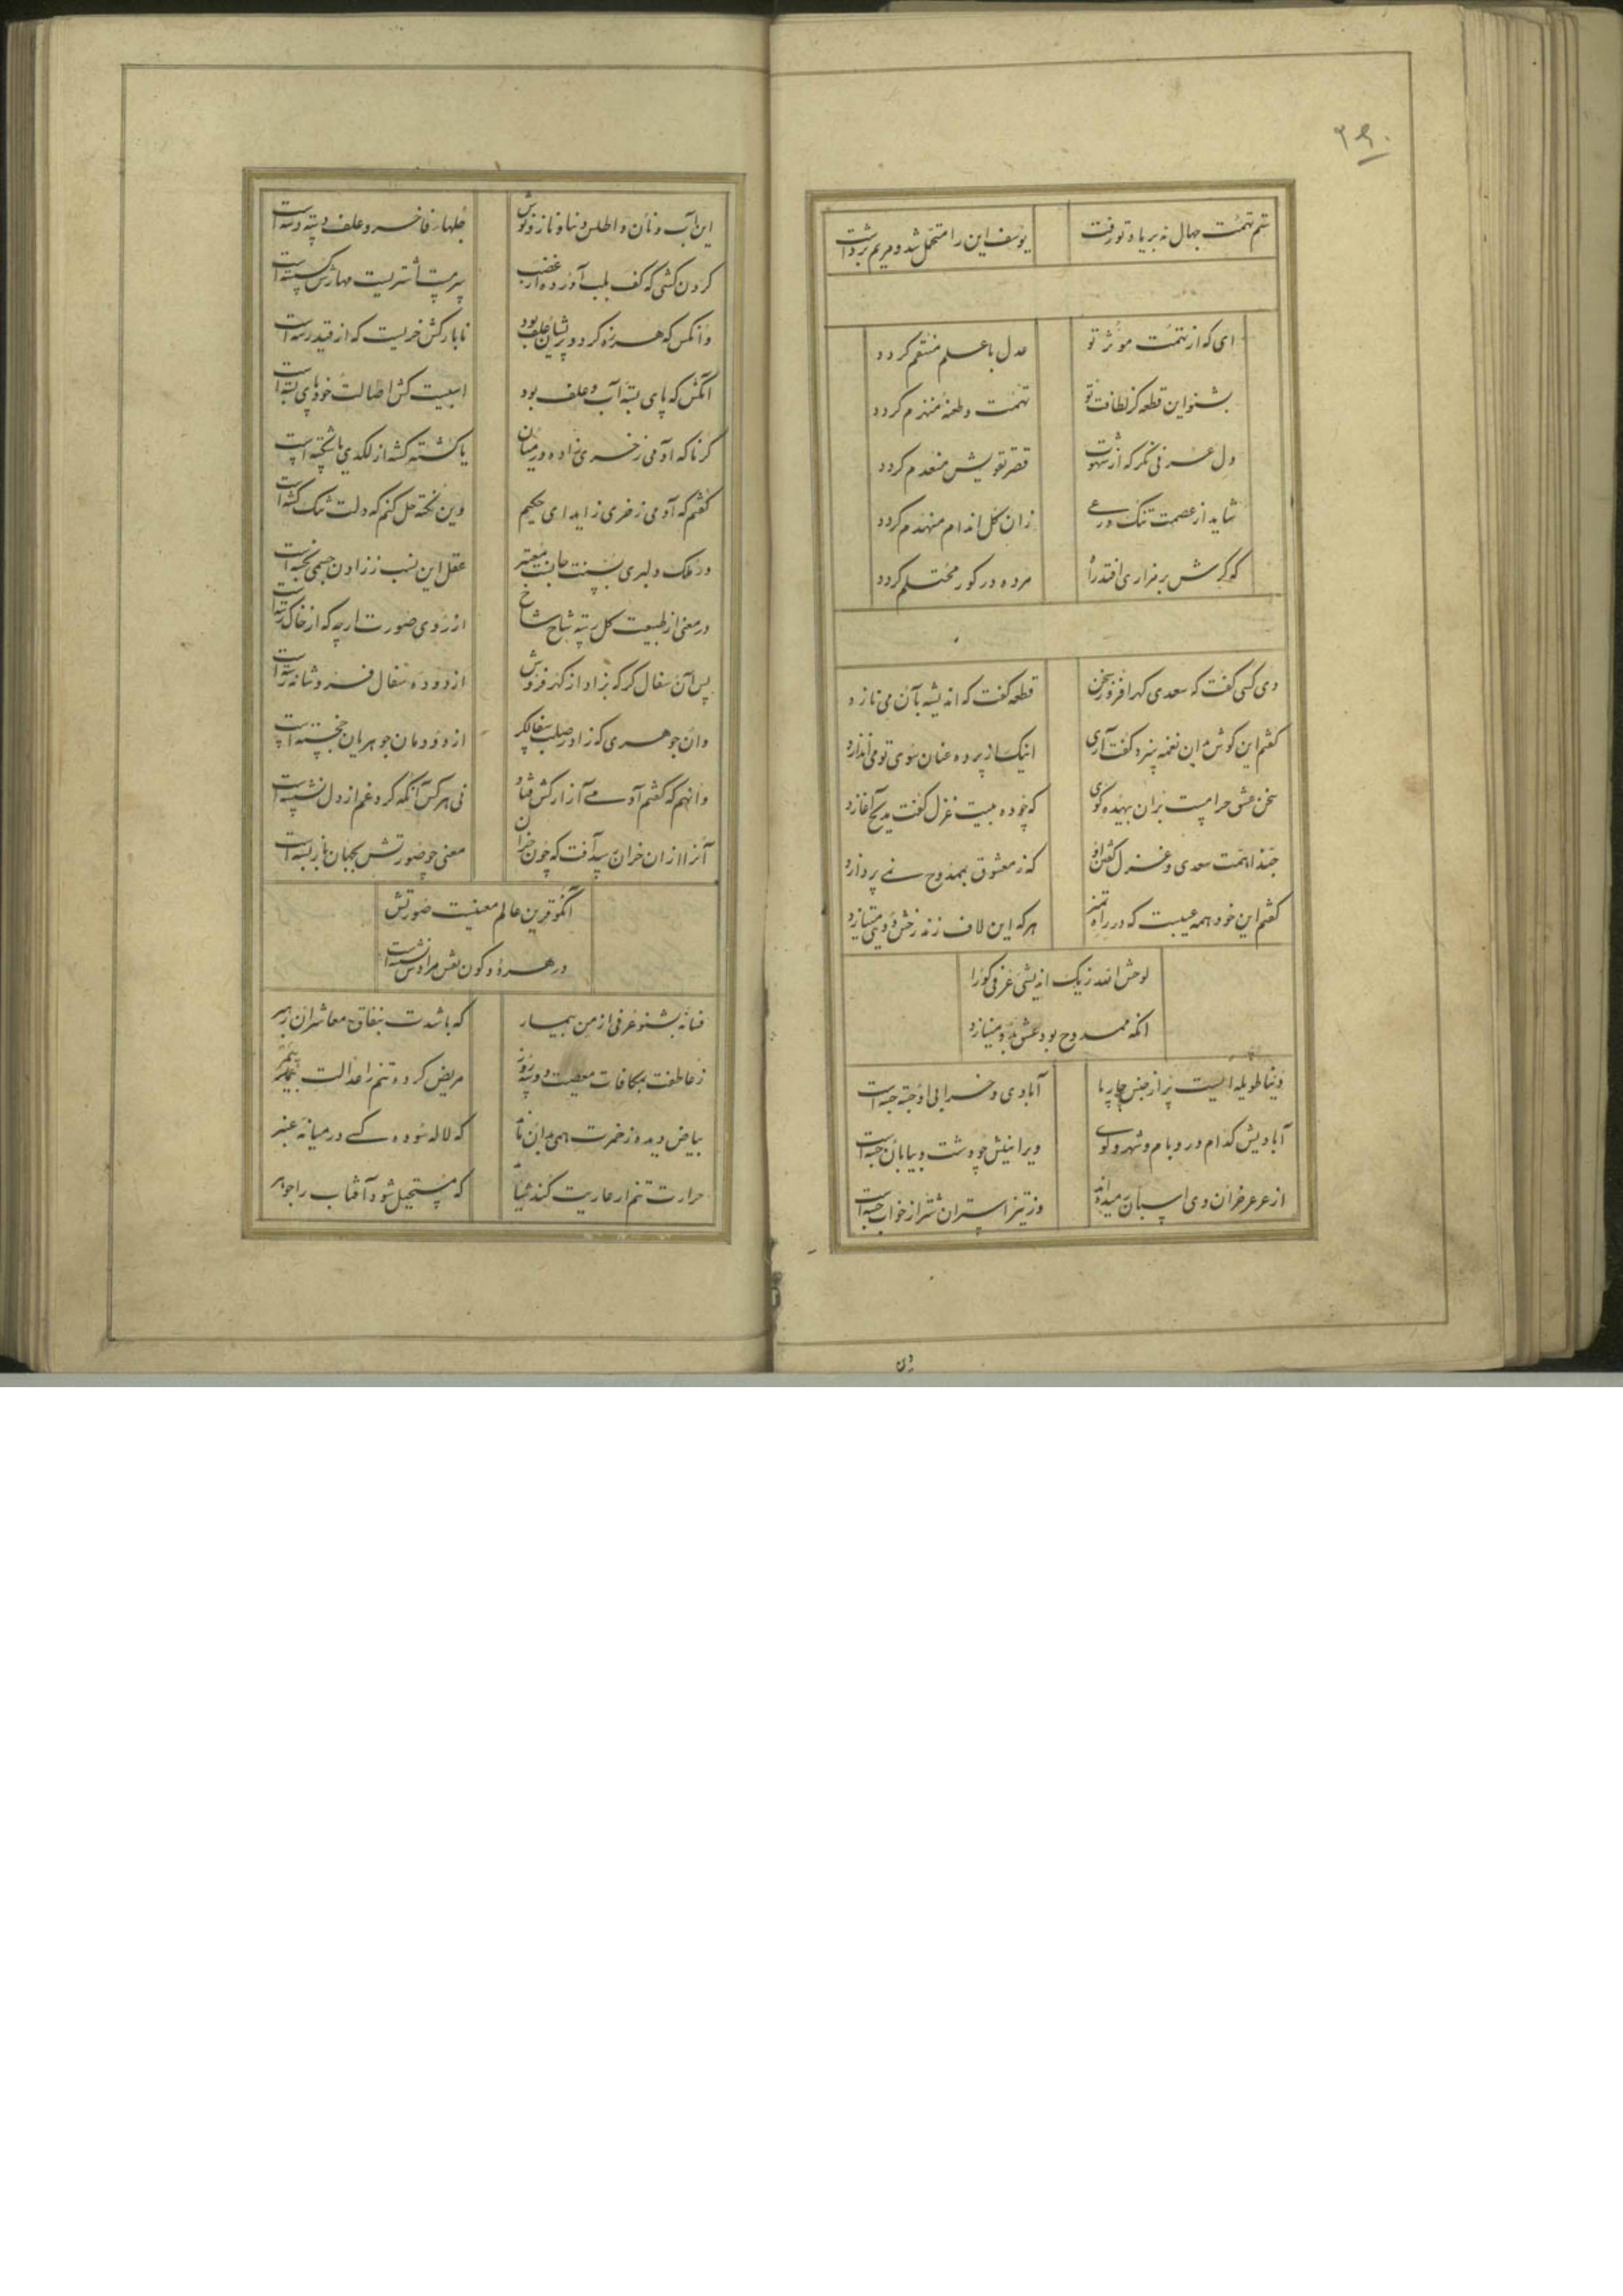 ۲۹۰
ستم تهمت جهال نه بر یاد تو رفت
یوسف این را متحمل شد و مریم برداشت
ای که از تهمت موثر تو
عدل با علم منتقم گردد
بشنو این قطعه کز لطافت تو
تهمت و طعنه منهزم گردد
دل عرفی نگر که از شهوت
قصر تقویش منعدم گردد
شاید از عصمت تنک ورعی
زان گل اندام منهدم گردد
که گرش بر مزاری افتد راه
مرده در گور محتلم گردد
دی کسی گفت که سعدی گهر افروز سخن
قطعه گفت که اندیشه بآن می نازد
گفتم این گوش بدین نغمه سزد گفت آری
اینک از پرده عنان سوی تو می اندازد
سخن عشق حرامست بران بیهده گوی
که چو ده بیت غزل گفت مدیح آغازد
حبذا همت سعدی و غزل گفتن او
که ز معشوق بممدوح نمی پردازد
گفتم این خود همه عیبست که در راه تمیز
هر که این لاف زند رخش دویی میتازد
لوحش الله ز یک اندیشی عرفی کو را
آنکه ممدوح بود عشق بدو میبازد
دنیا طویله ایست پر از جنس چارپا
آبادی و خرابی او جسته جسته است
آبادیش کدام در و بام و شهر و کوی
ویرانیش چو دشت و بیابان جسته است
از عرعر خران وی اسبان رمیده اند
وز تیز استران شتر از خواب جسته است
این آب و نان و اطلس و دیبا و ناز و نوش
جلهای فاخر و علف دسته دسته است
گردن کشی که کف بلب آورده از غضب
سرمست اشتریست مهارش گسسته است
وانکس که هرزه گردد و پریشان علف بود
نا بارکش خریست که از قید رسته است
آنکس که پای بسته آب و علف بود
اسبیست کش اصالت خود پای بسته است
گر ناگه آدمی ز خری زاده در میان
یا کشته گشته از لگدی یا شکسته است
گفتم که آدمی ز خری زاید ای حکیم
وین نکته حل کنم که دلت تنگ گشته است
در ملک دلبری
عقل این نسب ز زادن جسمی نجسته است
در معنی از طبیعت گل رسته شاخ شاخ
از روی صورت ارچه که از خاک رسته است
پس آن سفال گر که بزاد از گهر فروش
از دوده سفال فروشانه رسته است
وان جوهری که زاد ز صلب سفالگر
از دودمان جوهریان خجسته است
وانهم که گفتم آدمی آزار کش فتاد
نی هر کس آنکه گرد غم از دل نشسته است
آنرا ازان خران رسد آفت که چون خران
معنی چو صورتش بجهان باز بسته است
آنکو قرین عالم معنیست صورتش
در هر دو کون نقش مرادش نشسته است
فسانه بشنو عرفی از من بیمار
که باشدت بنفاق معاشران رهبر
ز عاطفت بمکافات معصیت دو سه روز
مریض کرده تنم را عدالت
بیاض دیده ز حمرت همی بدان ماند
که لاله سوده کسی در میانه عنبر
حرارت تنم ار عاریت کند شبها
که مستحیل شود آفتاب را جوهر